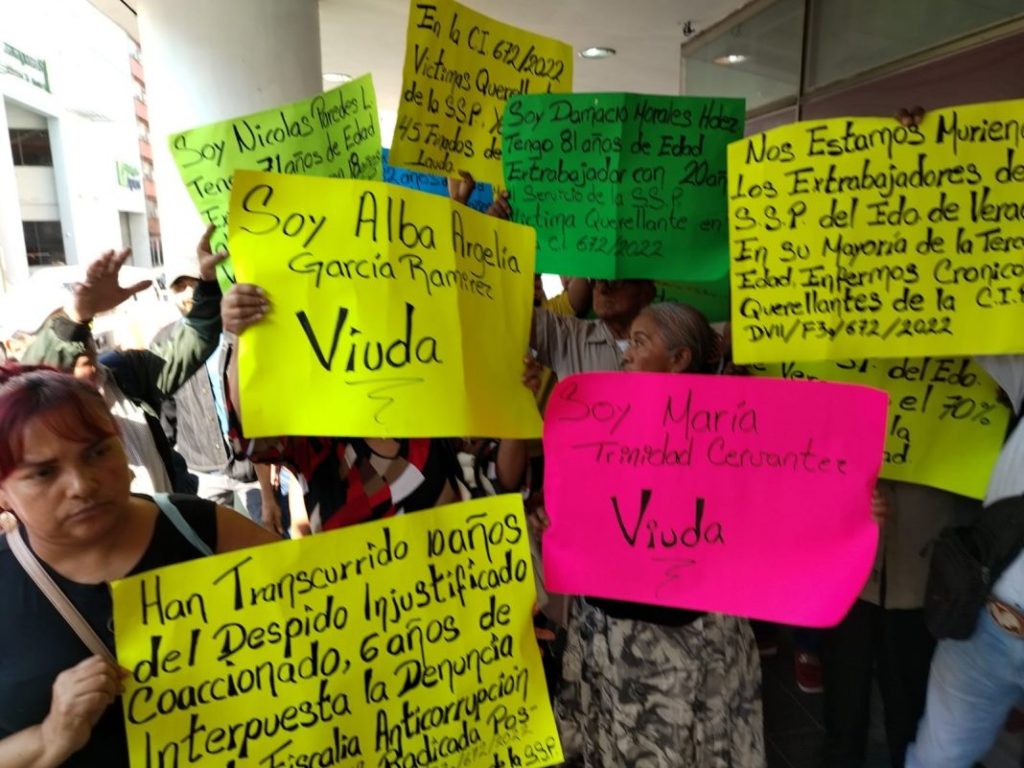 En la C.I. 672/2022
Victimas Querellant
de la S.S.P. y
45 Finados de
Lauda
Soy Nicolas Paredes L
71 años de Edad
Teng
Soy Damacio Morales Hdez
Tengo 81 años de Edad
Extrabajador con 20 añ
Servicio de la S.S.P.
Victima Querellante en
a C.I 672/2022
Nos Estamos Murien
Los Extrabajadores de
S.S.P. del Edo de Verac
En su Mayoría de la Terce
Edad, Enfermos Cronico
Querellantes de la C.I.
DVII/F3a/672/2022
2 años de
Soy Alba Argelia
García Ramirez
Viuda
del Edo.
el 70%
la
ad
Soy María
Trinidad Cervantez
Viuda
Han Transcurrido 10 años
del Despido Injustificado
Coaccionado, 6 años de
Interpuesta la Denuncia
Fiscalia Anticorrupción
Radicada Pos-
672/2022
de la SSP